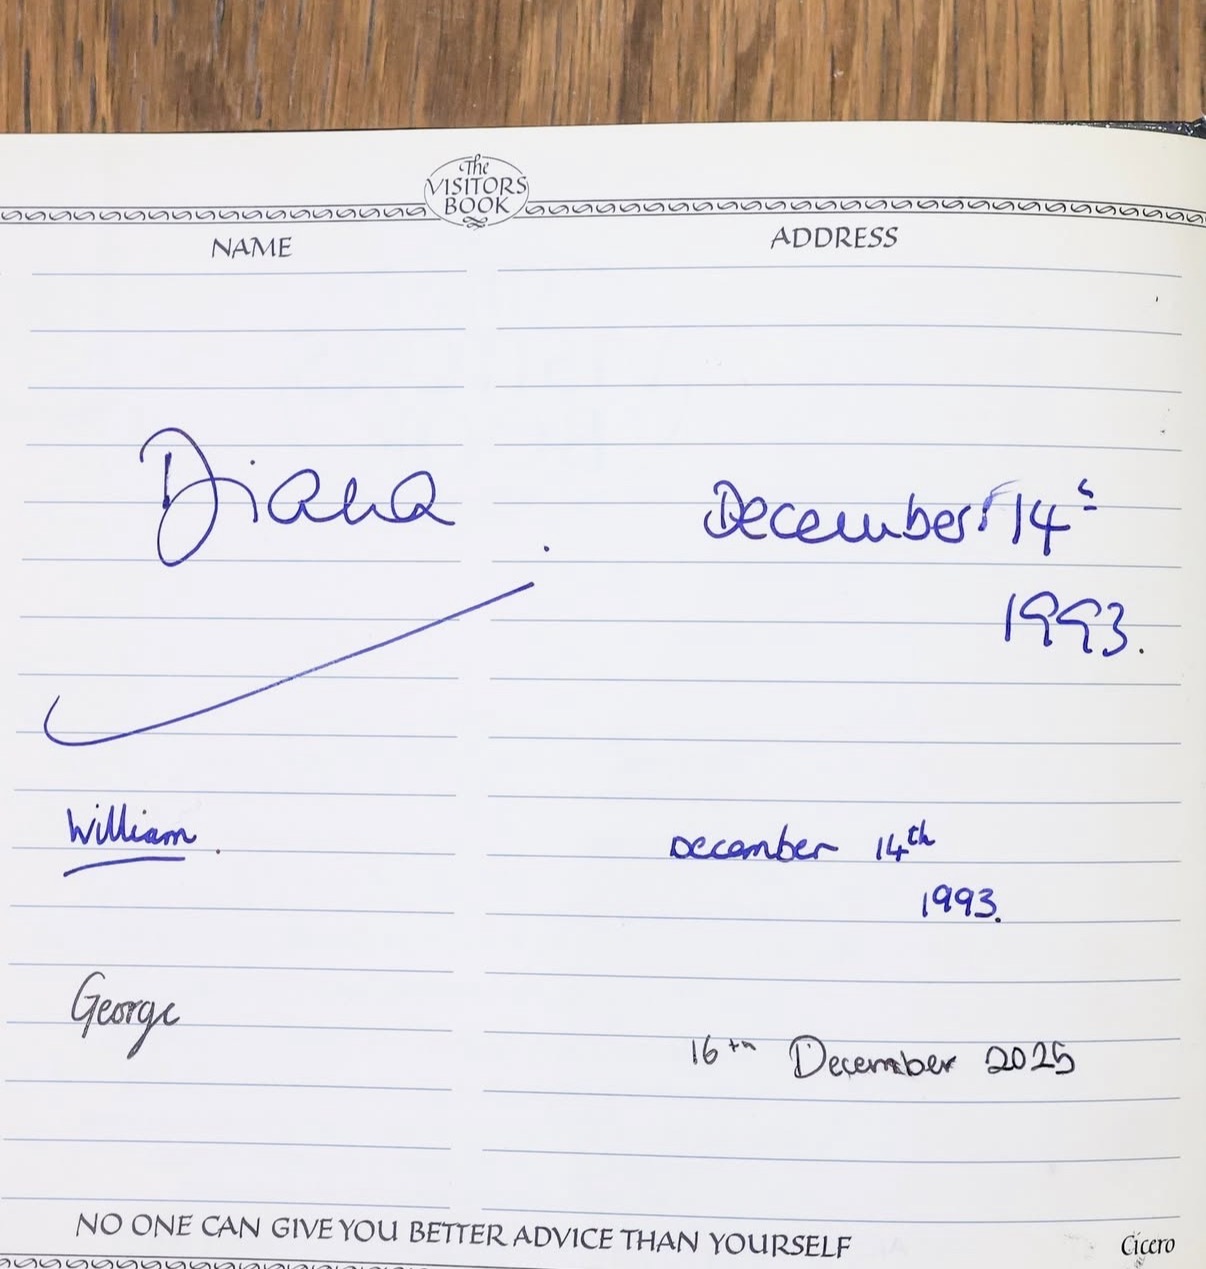 The
VISITORS
BOOK
NAME ADDRESS
Diana December 14th
1993.
William. December 14th
1993.
George
16th December 2025
NO ONE CAN GIVE YOU BETTER ADVICE THAN YOURSELF Cicero